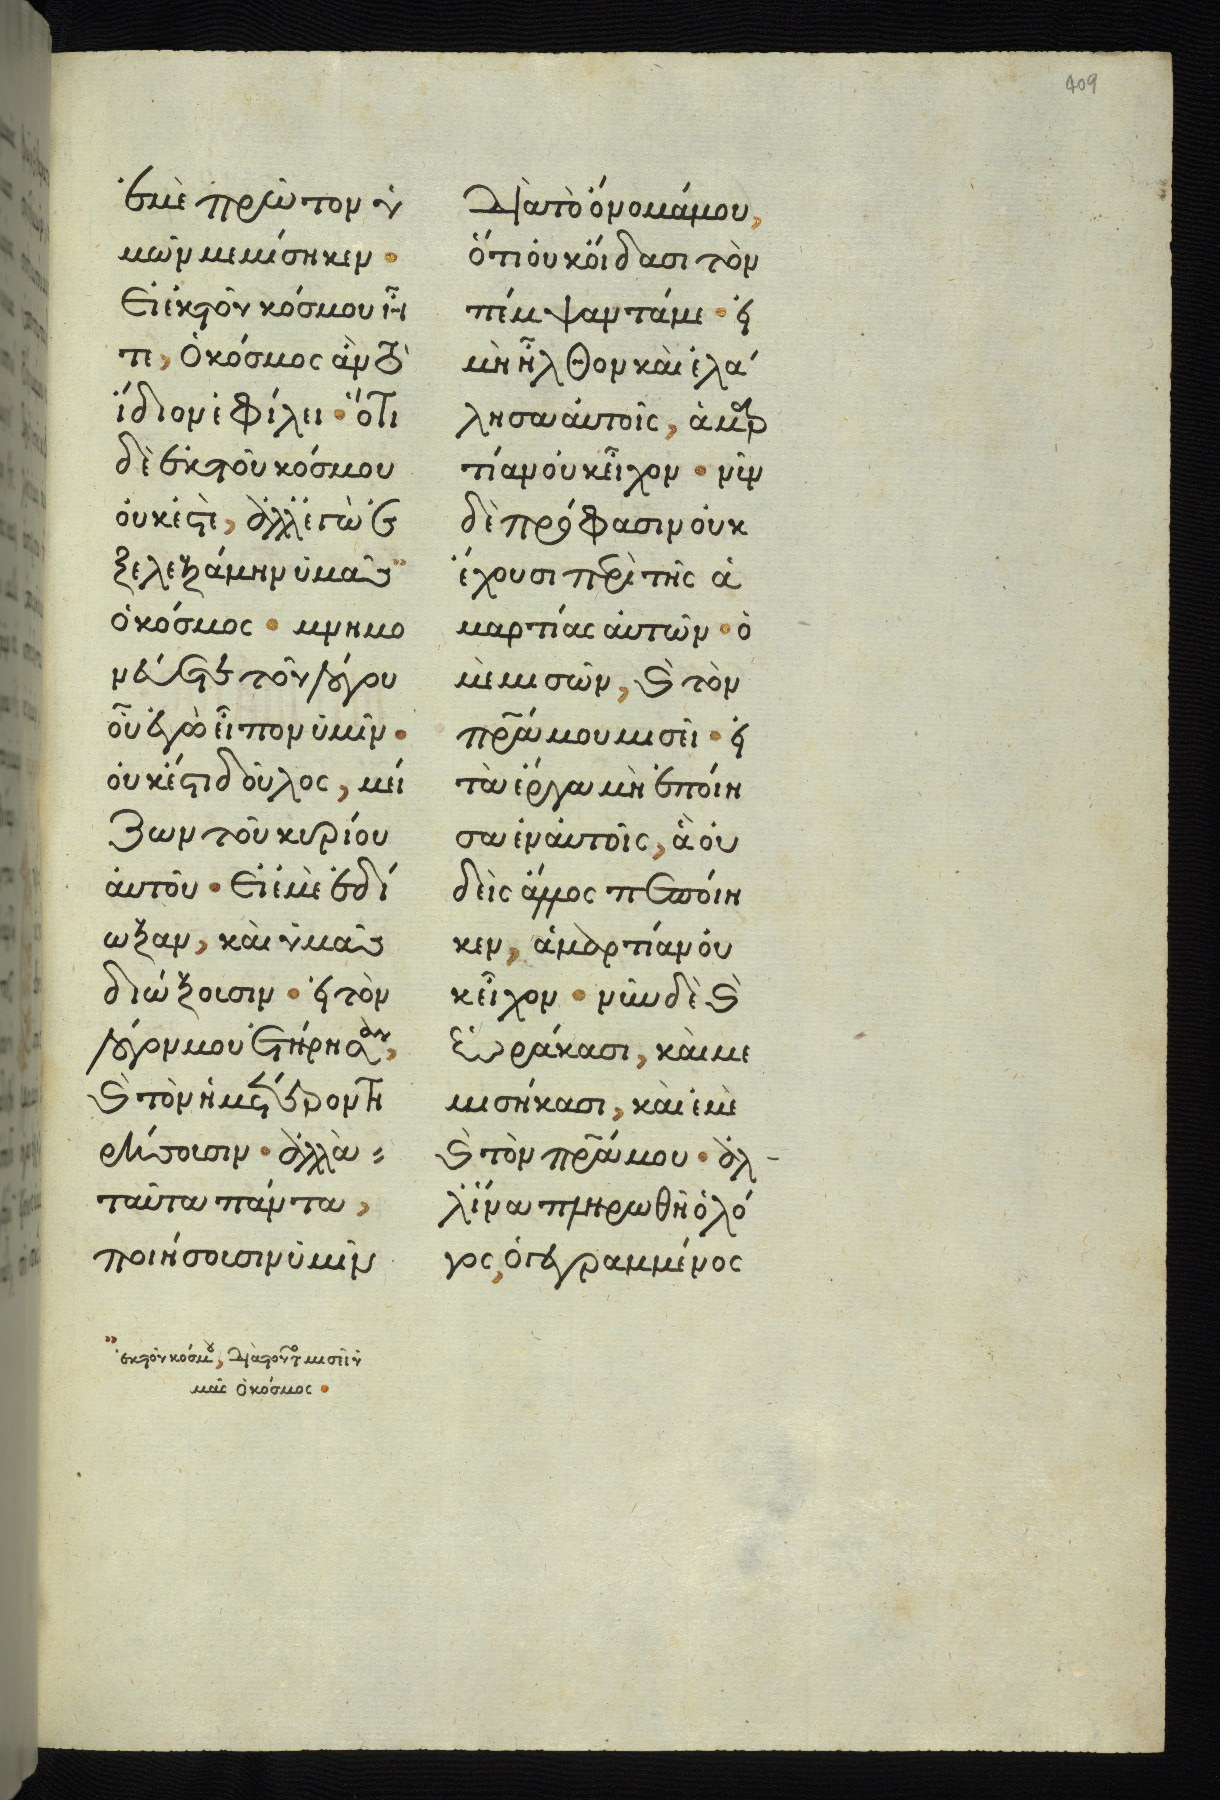 409
ἐμὲ πρῶτον ὑ
μῶν μεμίσηκεν.
Εἰ ἐκ τοῦ κόσμου ἦ
τε, ὁ κόσμος ἂν τὸ
ἴδιον ἐφίλει. ὅτι
δὲ ἐκ τοῦ κόσμου
οὐκ ἐστὲ, ἀλλ' ἐγὼ ἐ
ξελεξάμην ὑμᾶς"
ὁ κόσμος. μνημο
νεύετε τοῦ λόγου
οὗ ἐγὼ εἶπον ὑμῖν.
οὐκ ἔστι δοῦλος, μεί
ζων τοῦ κυρίου
αὐτοῦ. Εἰ ἐμὲ ἐδί
ωξαν, καὶ ὑμᾶς
διώξουσιν. εἰ τὸν
λόγον μου ἐτήρησαν,
καὶ τὸν ὑμέτερον τη
ρήσουσιν. ἀλλὰ
ταῦτα πάντα,
ποιήσουσιν ὑμῖν
"ἐκ τοῦ κόσμου, διὰ τοῦτο μισεῖ ὑ
μᾶς ὁ κόσμος.
διὰ τὸ ὄνομά μου,
ὅτι οὐκ οἴδασι τὸν
πέμψαντά με. εἰ
μὴ ἦλθον καὶ ἐλά
λησα αὐτοῖς, ἁμαρ
τίαν οὐκ εἶχον. νῦν
δὲ πρόφασιν οὐκ
ἔχουσι περὶ τῆς ἁ
μαρτίας αὐτῶν. ὁ
ἐμὲ μισῶν, καὶ τὸν
πρα μου μισεῖ. εἰ
τὰ ἔργα μὴ ἐποίη
σα ἐν αὐτοῖς, ἃ οὐ
δεὶς ἄλλος πεποίη
κεν, ἁμαρτίαν οὐ
κ εἶχον. νῦν δὲ καὶ
ἑωράκασι, καὶ με
μισήκασι, καὶ ἐμὲ
καὶ τὸν πρα μου. ἀλ-
λ' ἵνα πληρωθῇ ὁ λό
γος, ὁ γεγραμμένος